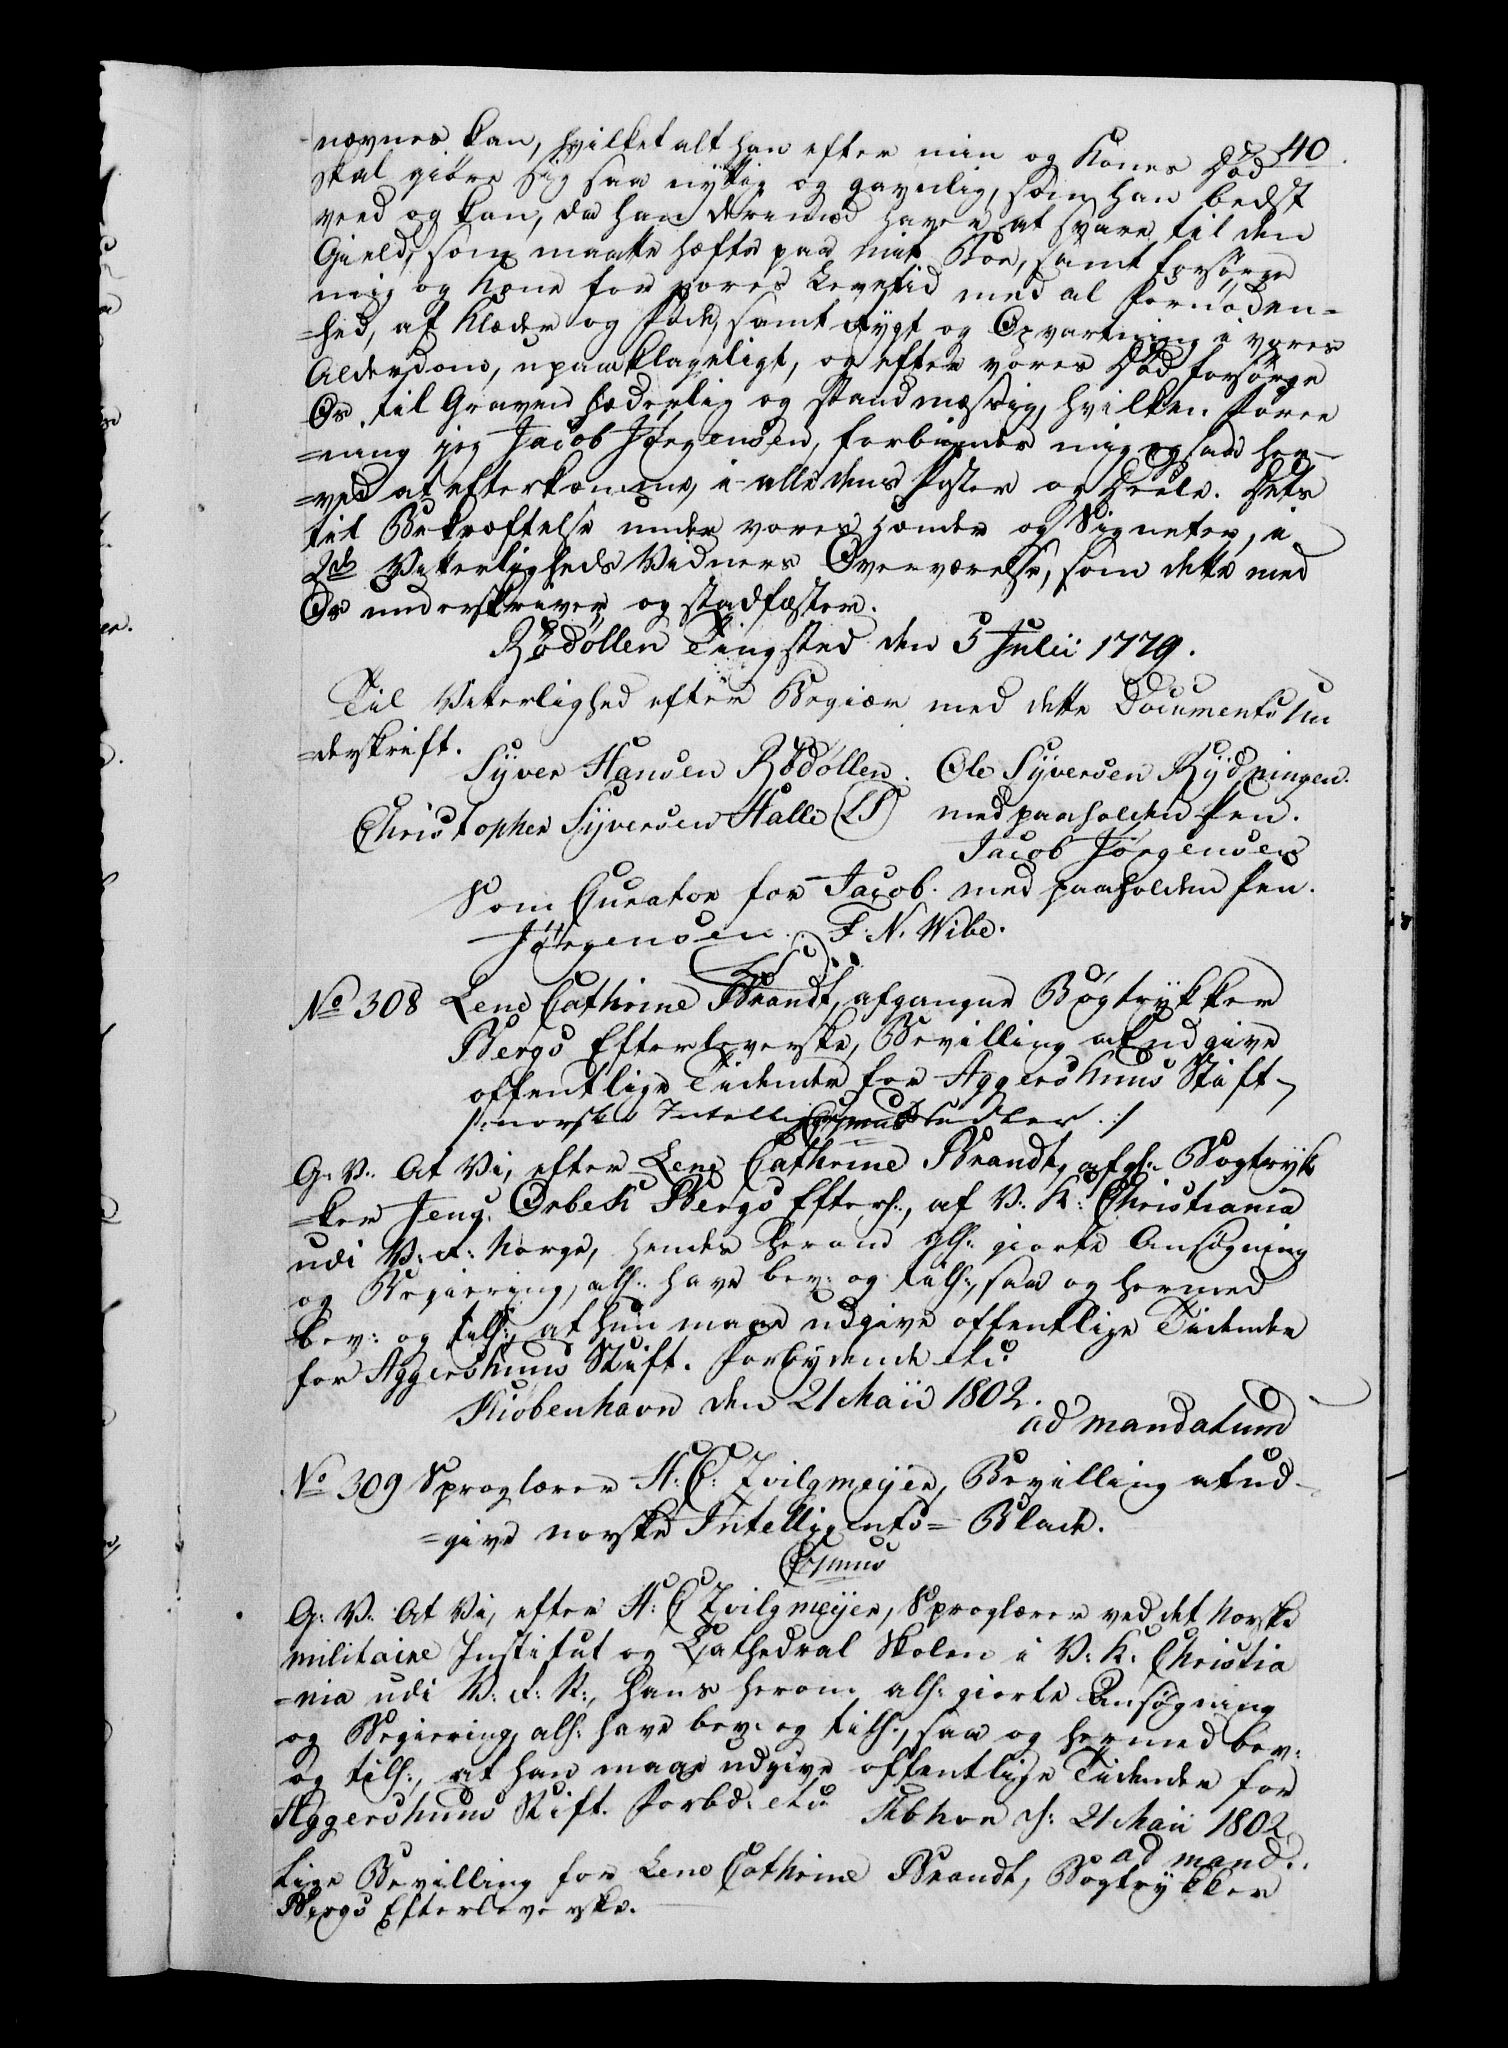 40
nævnes kan, hvilket alt han efter min og Kones Død
skal giøre sig saa nyttig og gavnlig, som han bedst
veed og kan, da han derimod haver at svare til den
Gield, som maatte hæfte paa mit Boe, samt forsørge
mig og Kone for vores Levetid med al fornøden-
=hed, af Klæder og Føde, samt Røgt og Opvartning i vores
Alderdom, upaaklageligt, og efter vores Død forsørge
Os til Graven hæderlig og standmæssig, hvilken Foree
=ning jeg Jacob Jørgensen, forbinder mig ogsaa her-
=ved at efterkomme, i alle dens Poster og Deele. Dets
til Bekræftelse under vores Hænder og Signeter, i
2de Vitterligheds Vidners Overværelse, som dette med
Os underskriver og stadfæster.
Rødøllen Tingsted den 5 Julii 1779.
Til Vitterlighed efter Begiær med dette Documents Un
=derskrift.
Syver Hansen Rødøllen. Ole Syversen Rydningen.
Christopher Syversen Halle (LS) med paaholden Pen.
Jacob Jørgensen
Som Curator for Jacob med paaholden Pen.
Jørgensen. F. N. Wibe.
(LS)
No 308 Lene Cathrine Brandt, afgangne Bogtrykker
Bergs Efterleverske, Bevilling at udgive
offentlige Tidender for Aggershuus Stift
/: norske Intelligents Sedler :/
Cosmus
G. V. At Vi, efter Lene Cathrine Brandt, afg: Bogtryk
=ker Jens Ørbek Bergs Efterl:, af V. K: Christiania
udi V: R: Norge, hendes herom all: giorte Ansøgning
og Begiering, all: have bev: og till:, saa og hermed
bev: og till:, at hun maae udgive offentlige Tidender
for Aggershuus Stift. Forbydende etc.
Kiøbenhavn den 21 Maii 1802.
ad mandatum
No 309 Sproglærer H: C: Zvilgmeyer, Bevilling at ud-
=give norske Intelligents= Blade.
Cosmus
G. V. At Vi, efter H: C Zvilgmeyer, Sproglærer ved det Norske
militaire Institut og Cathedral Skolen i V: K: Christia
=nia udi V: R: N:, Hans herom all: giorte Ansøgning
og Begiering, all: have bev: og till:, saa og hermed bev:
og till:, at han maae udgive offentlige Tidender for
Aggershuus Stift. Forbd: etc. Kbhvn d: 21 Maii 1802
ad mand:.
Lige Bevilling for Lene Cathrine Brandt, Bogtrykker
Bergs Efterleverske.